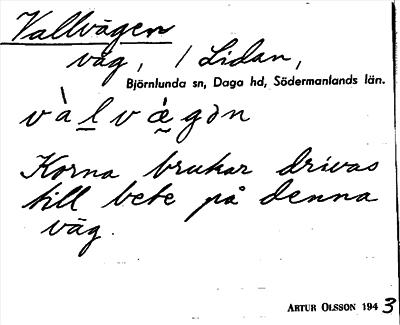 Vallvägen
väg, / Lidan,
Björnlunda sn, Daga hd, Södermanlands län.
và̀l̠væ̀gən
Korna brukar drivas
till bete på denna
väg.
ARTUR OLSSON 1943